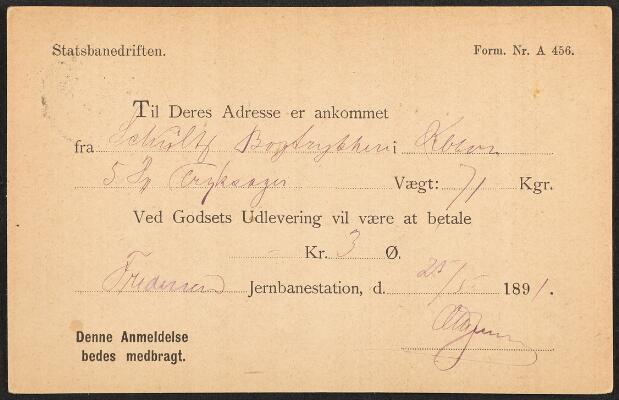 Statsbanedriften. Form. Nr. A 456.
Til Deres Adresse er ankommet
fra Schultz Bogtrykkeri i Kbhvn
5 Tryksager Vægt: 71 Kgr.
Ved Godsets Udlevering vil være at betale
Kr. 3 Ø.
Jernbanestation, d. 25/5 1891.
Denne Anmeldelse
bedes medbragt.